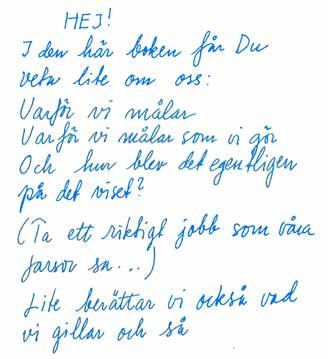 HEJ!
I den här boken får Du
veta lite om oss:
Varför vi målar
Varför vi målar som vi gör
Och hur blev det egentligen
på det viset?
(Ta ett riktigt jobb som våra
farsor sa...)
Lite berättar vi också vad
vi gillar och så